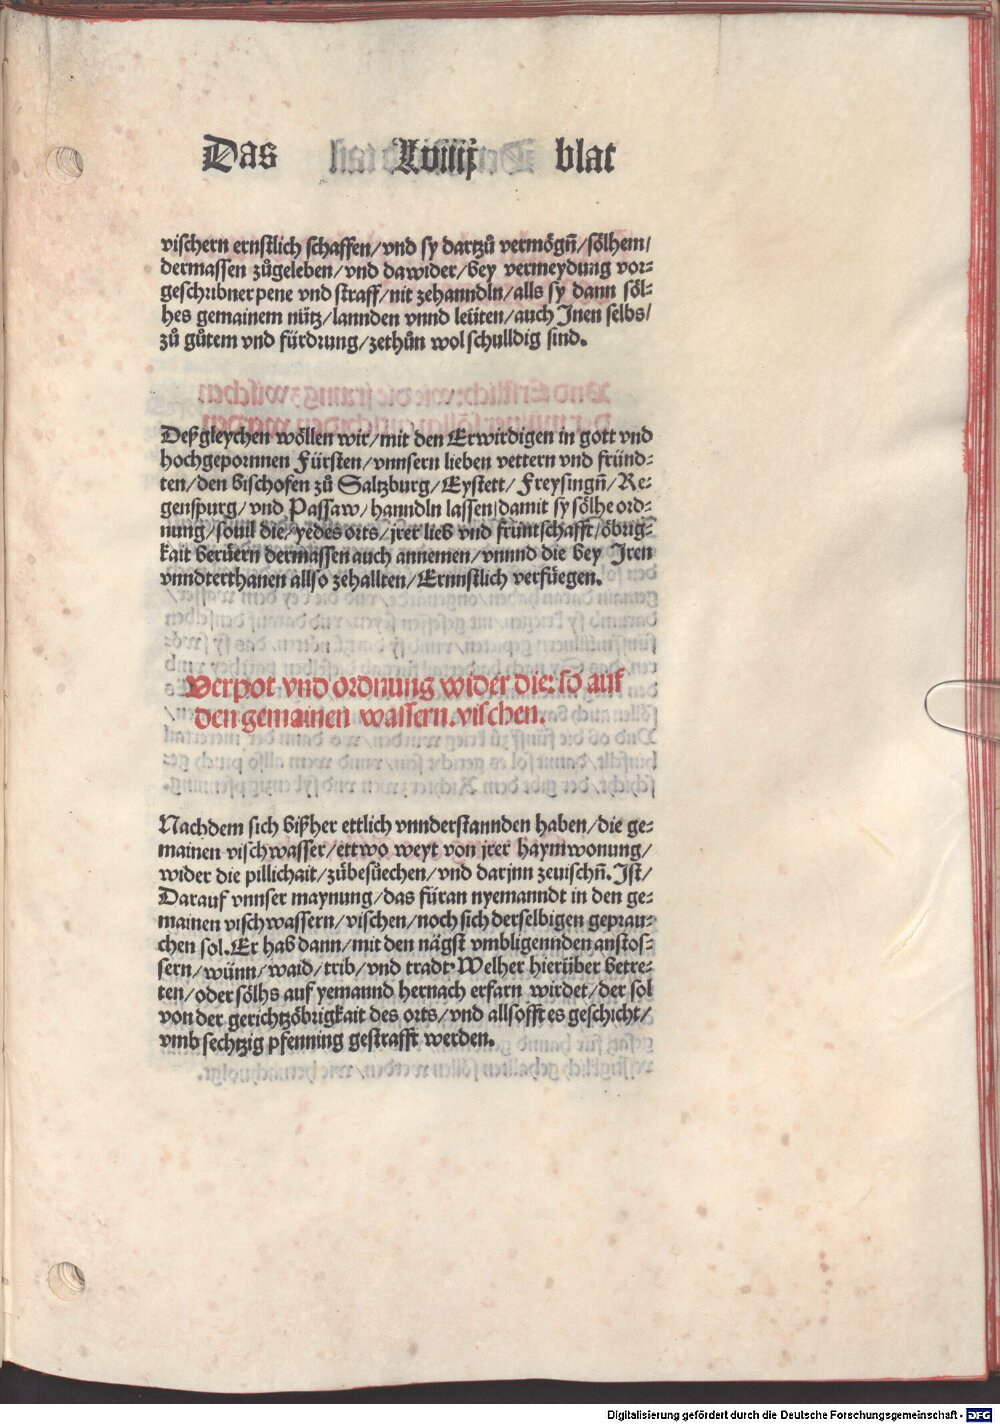 Das Lviiij blat
vischern ernstlich schaffen/vnd sy dartzů vermögñ/sölhem/
dermassen zůgeleben/vnd dawider/bey vermeydung vor⸗
geschribner pene vnd straff/nit zehanndln/alls sy dann söl⸗
hes gemainem nütz/lannden vnnd leüten/auch Inen selbs/
zů gůtem vnd fürdrung/zethůn wol schulldig sind.
Deßgleychen wöllen wir/mit den Erwirdigen in gott vnd
hochgepornnen Fürsten/vnnsern lieben vettern vnd fründ⸗
ten/den bischofen zů Saltzburg/Eystett/Freysingñ/Re⸗
genspurg/vnd Passaw/hanndln lassen/damit sy sölhe ord⸗
nung/souil die/yedes orts/jrer lieb vnd früntschafft/öbrig⸗
kait berüern dermassen auch annemen/vnnnd die bey Iren
vnndterthanen allso zehallten/Ernnstlich verfüegen.
Verpot vnd ordnung wider die: so auf
den gemainen wassern. vischen.
Nachdem sich bißher ettlich vnnderstannden haben/die ge⸗
mainen vischwasser/ettwo weyt von jrer haymwonung/
wider die pillichait/zübesüechen/vnd darjnn zeuischñ. Ist/
Darauf vnnser maynung/das füran nyemanndt in den ge⸗
mainen vischwassern/vischen/noch sich derselbigen geprau⸗
chen sol. Er hab dann/mit den nägst vmbligennden anstos⸗
sern/wünn/waid/trib/vnd tradt. Welher hierüber betre⸗
ten/oder sölhs auf yemannd hernach erfarn wirdet/der sol
von der gerichtzöbrigkait des orts/vnd allsofft es geschicht/
vmb sechtzig pfenning gestrafft werden.
Digitalisierung gefördert durch die Deutsche Forschungsgemeinschaft - DFG